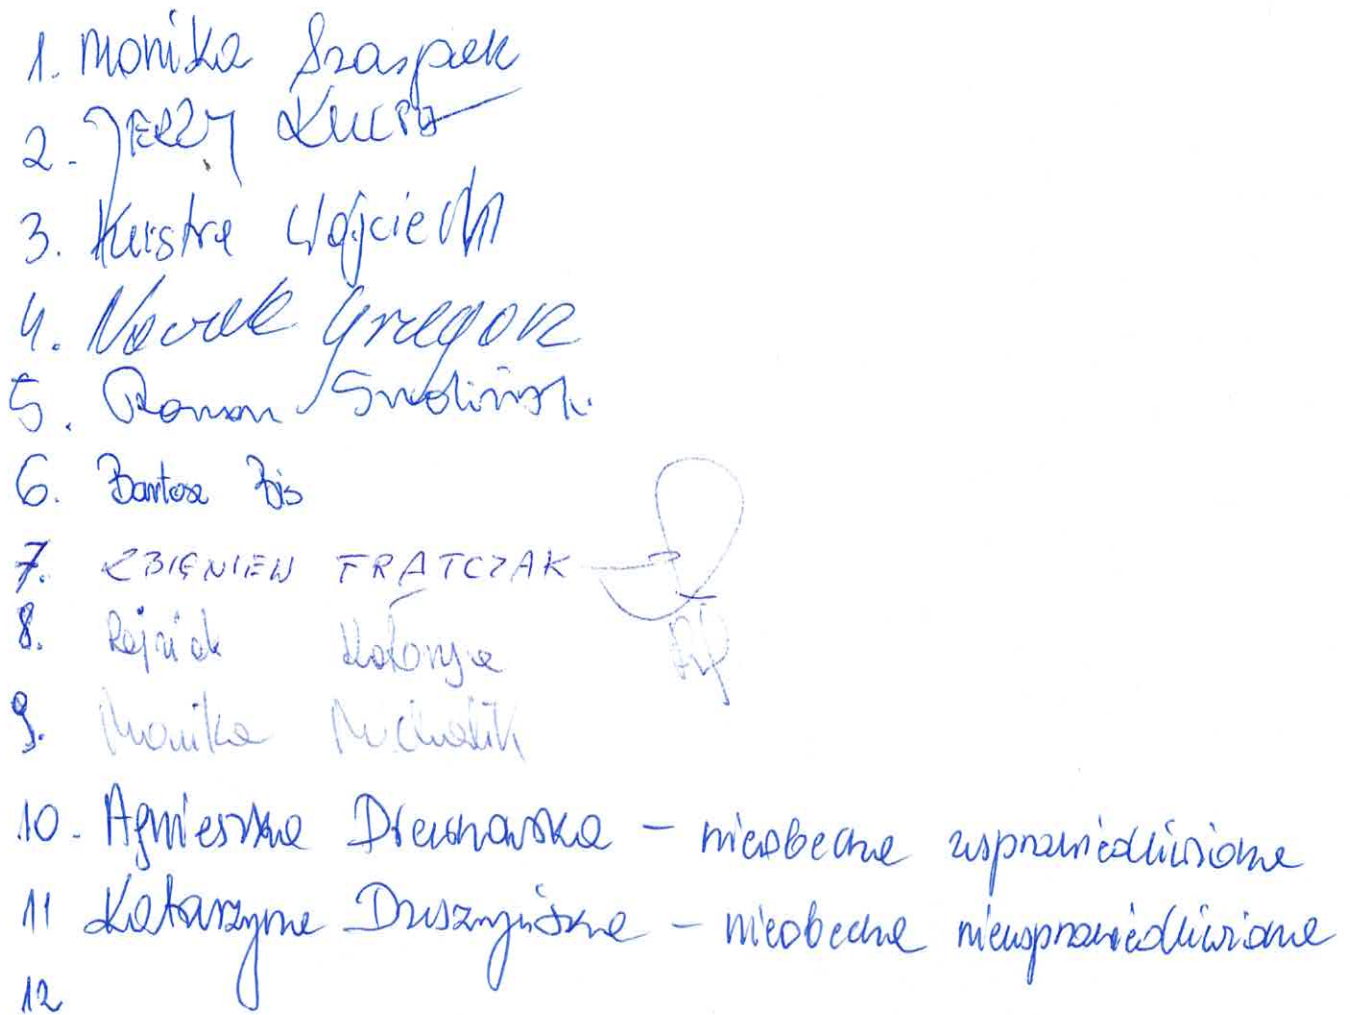 1. Monika Szaspek
2. JERZY KUCPA
3. Kustra Wojciech
4. Nowak Grzegorz
5. Roman Smoliński
6. Bartosz Bis
7. ZBIGNIEW FRĄTCZAK
8. Katarzyna
9. Monika Michalik
10. Agnieszka Drewnowska - nieobecna usprawiedliwiona
11 Katarzyna Duszyńska - nieobecna nieusprawiedliwiona
12